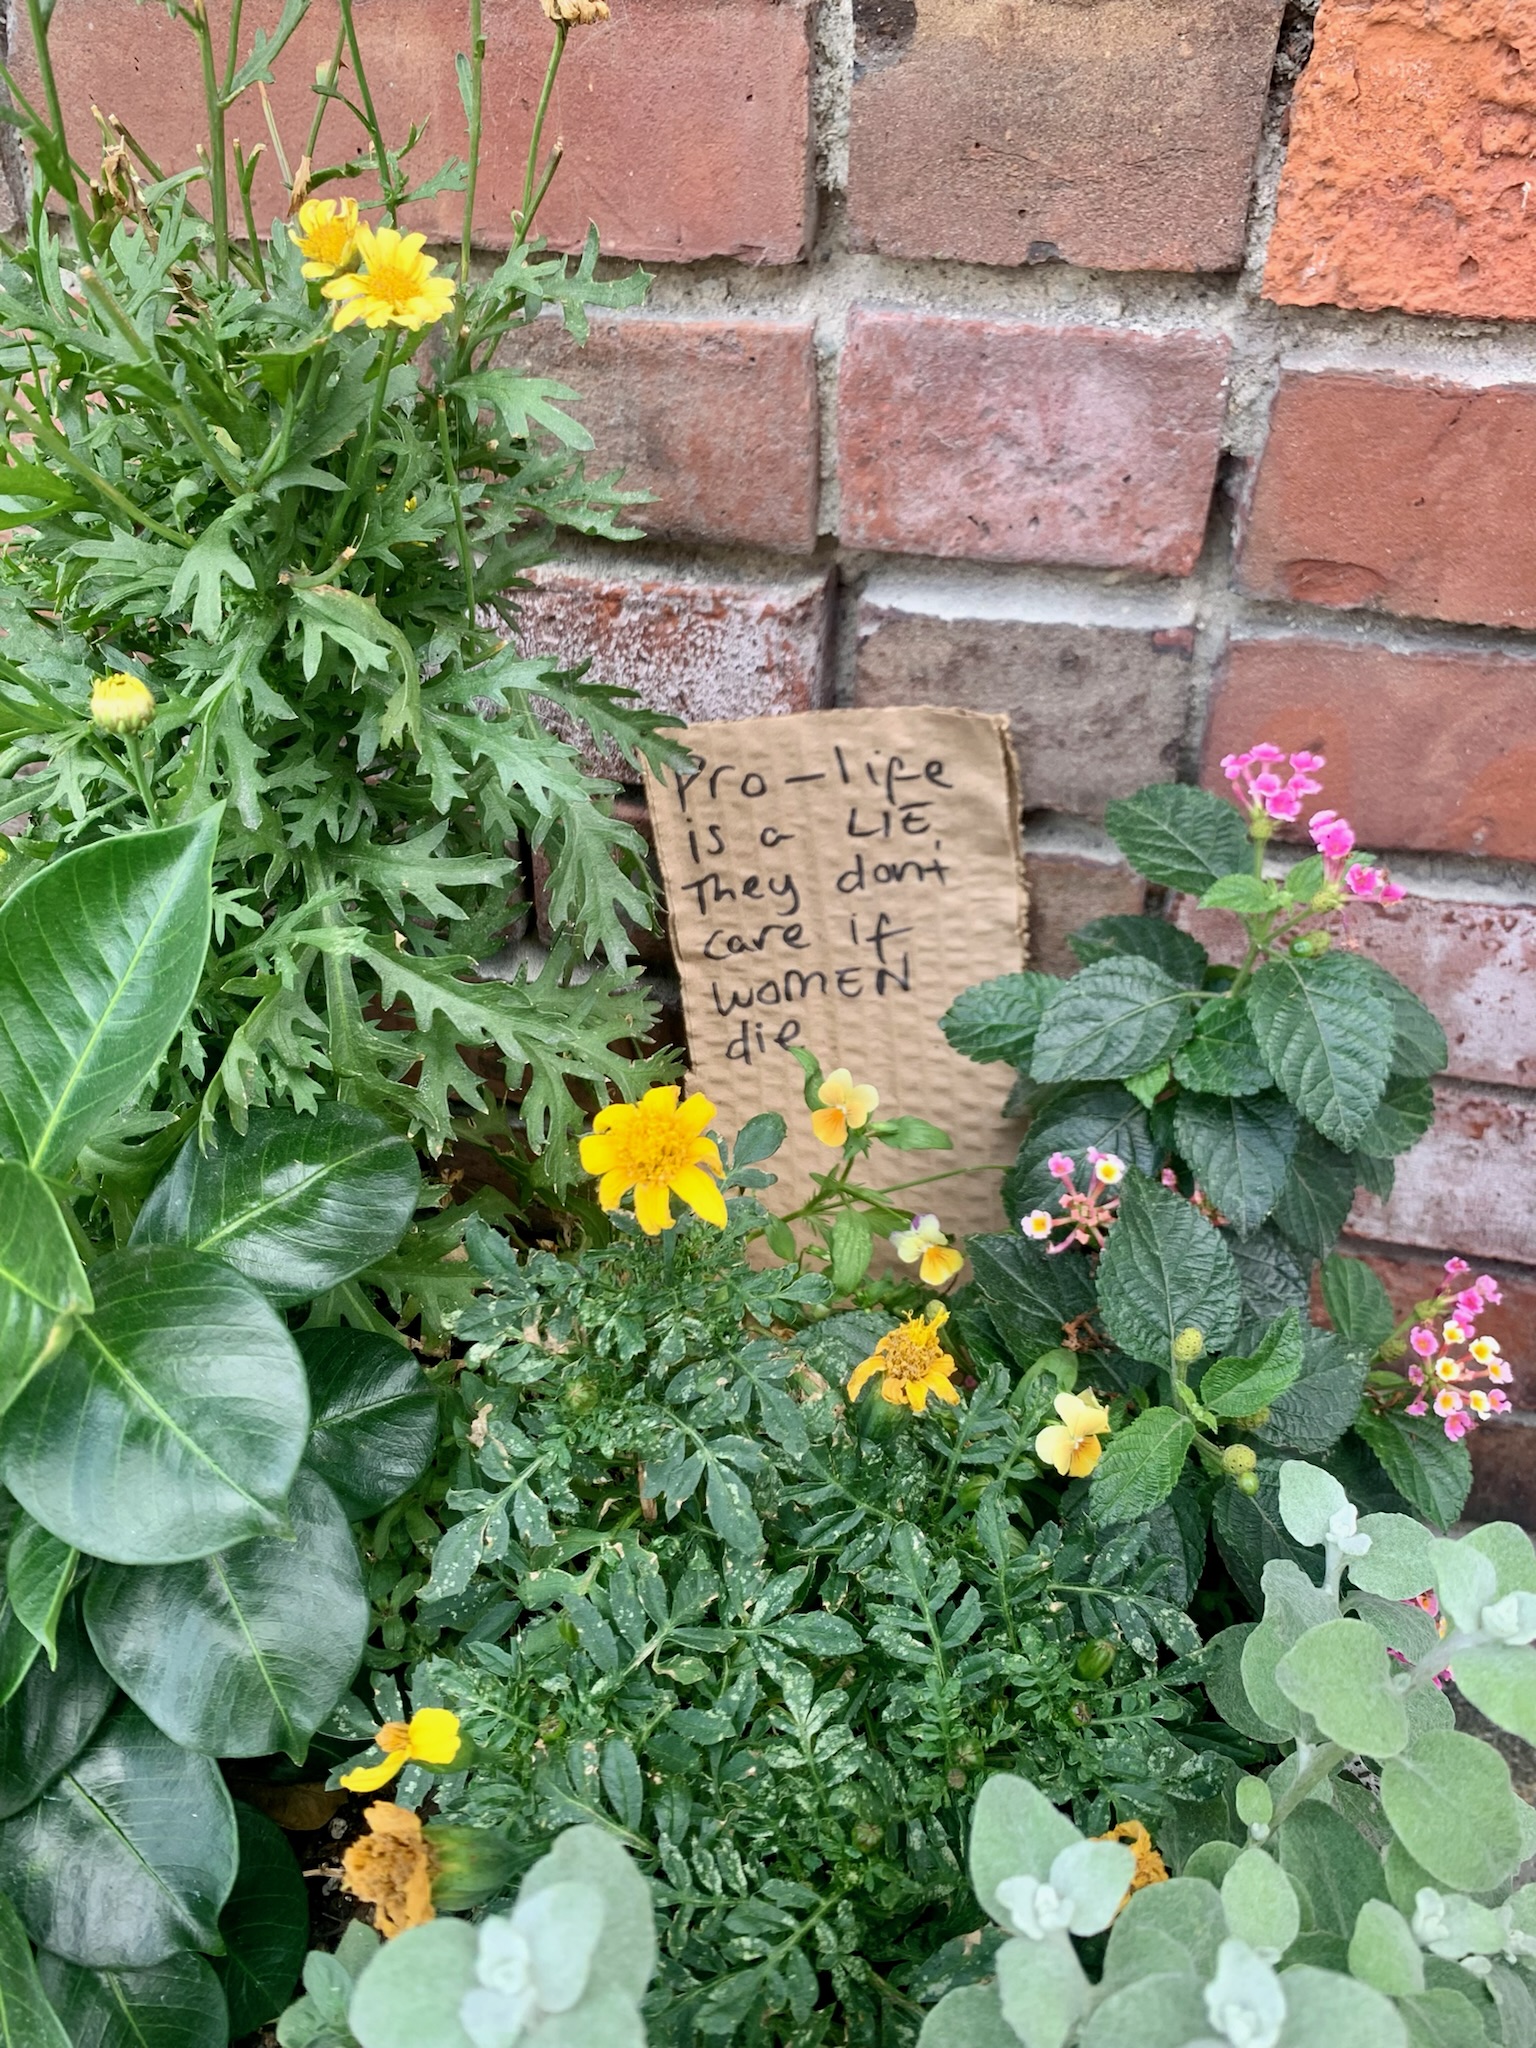 Pro-life
is a LIE
They don't
care if
WOMEN
die